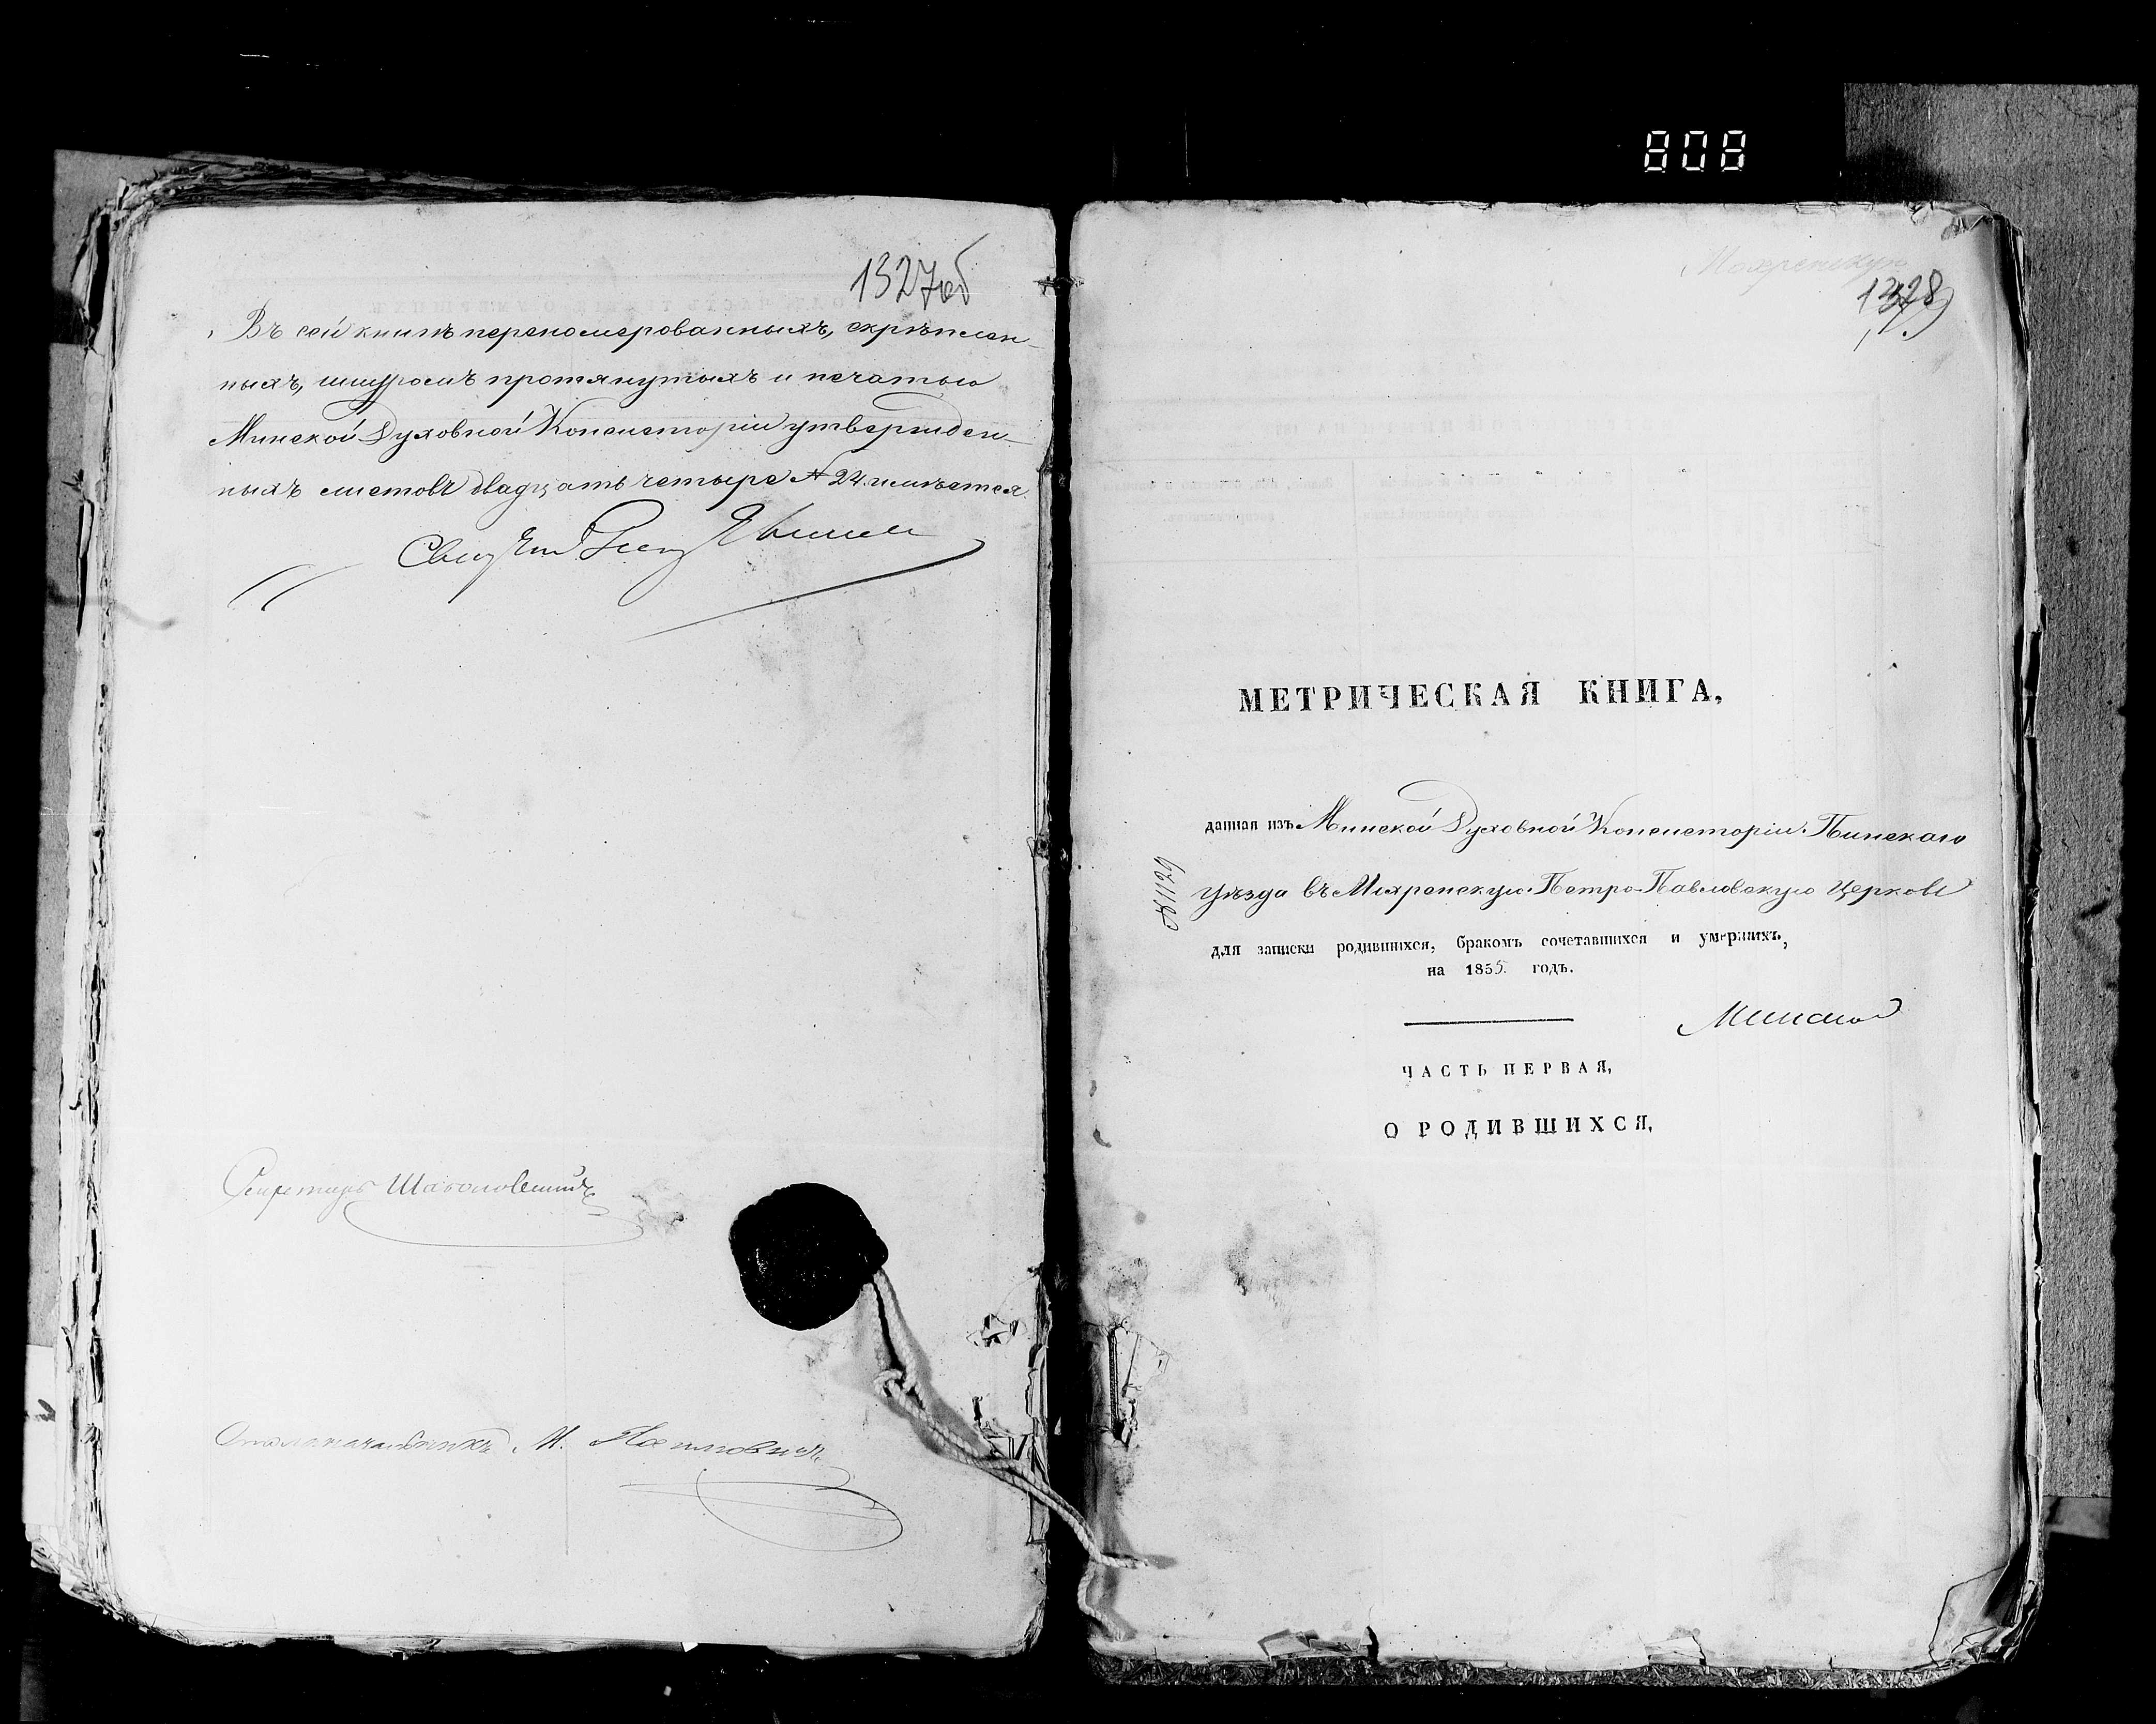 808
1327об
Въ сей книгѣ перенумерованныхъ, скрѣплен-
ныхъ, шнуромъ протянутыхъ и печатью
Минской Духовной Консисторіи утвержден-
ныхъ листовъ двадцать четыре № 24. имѣется
Секретарь
Столоначальникъ М.
Мохренскую
1328
МЕТРИЧЕСКАЯ КНИГА,
данная изъ Минской Духовной Консисторіи. Пинскаго
№ 1129
уѣзда въ Мохренскую Петро-Павловскую Церковь
для записки родившихся, бракомъ сочетавшихся и умершихъ,
на 1855. годъ.
ЧАСТЬ ПЕРВАЯ,
О РОДИВШИХСЯ,